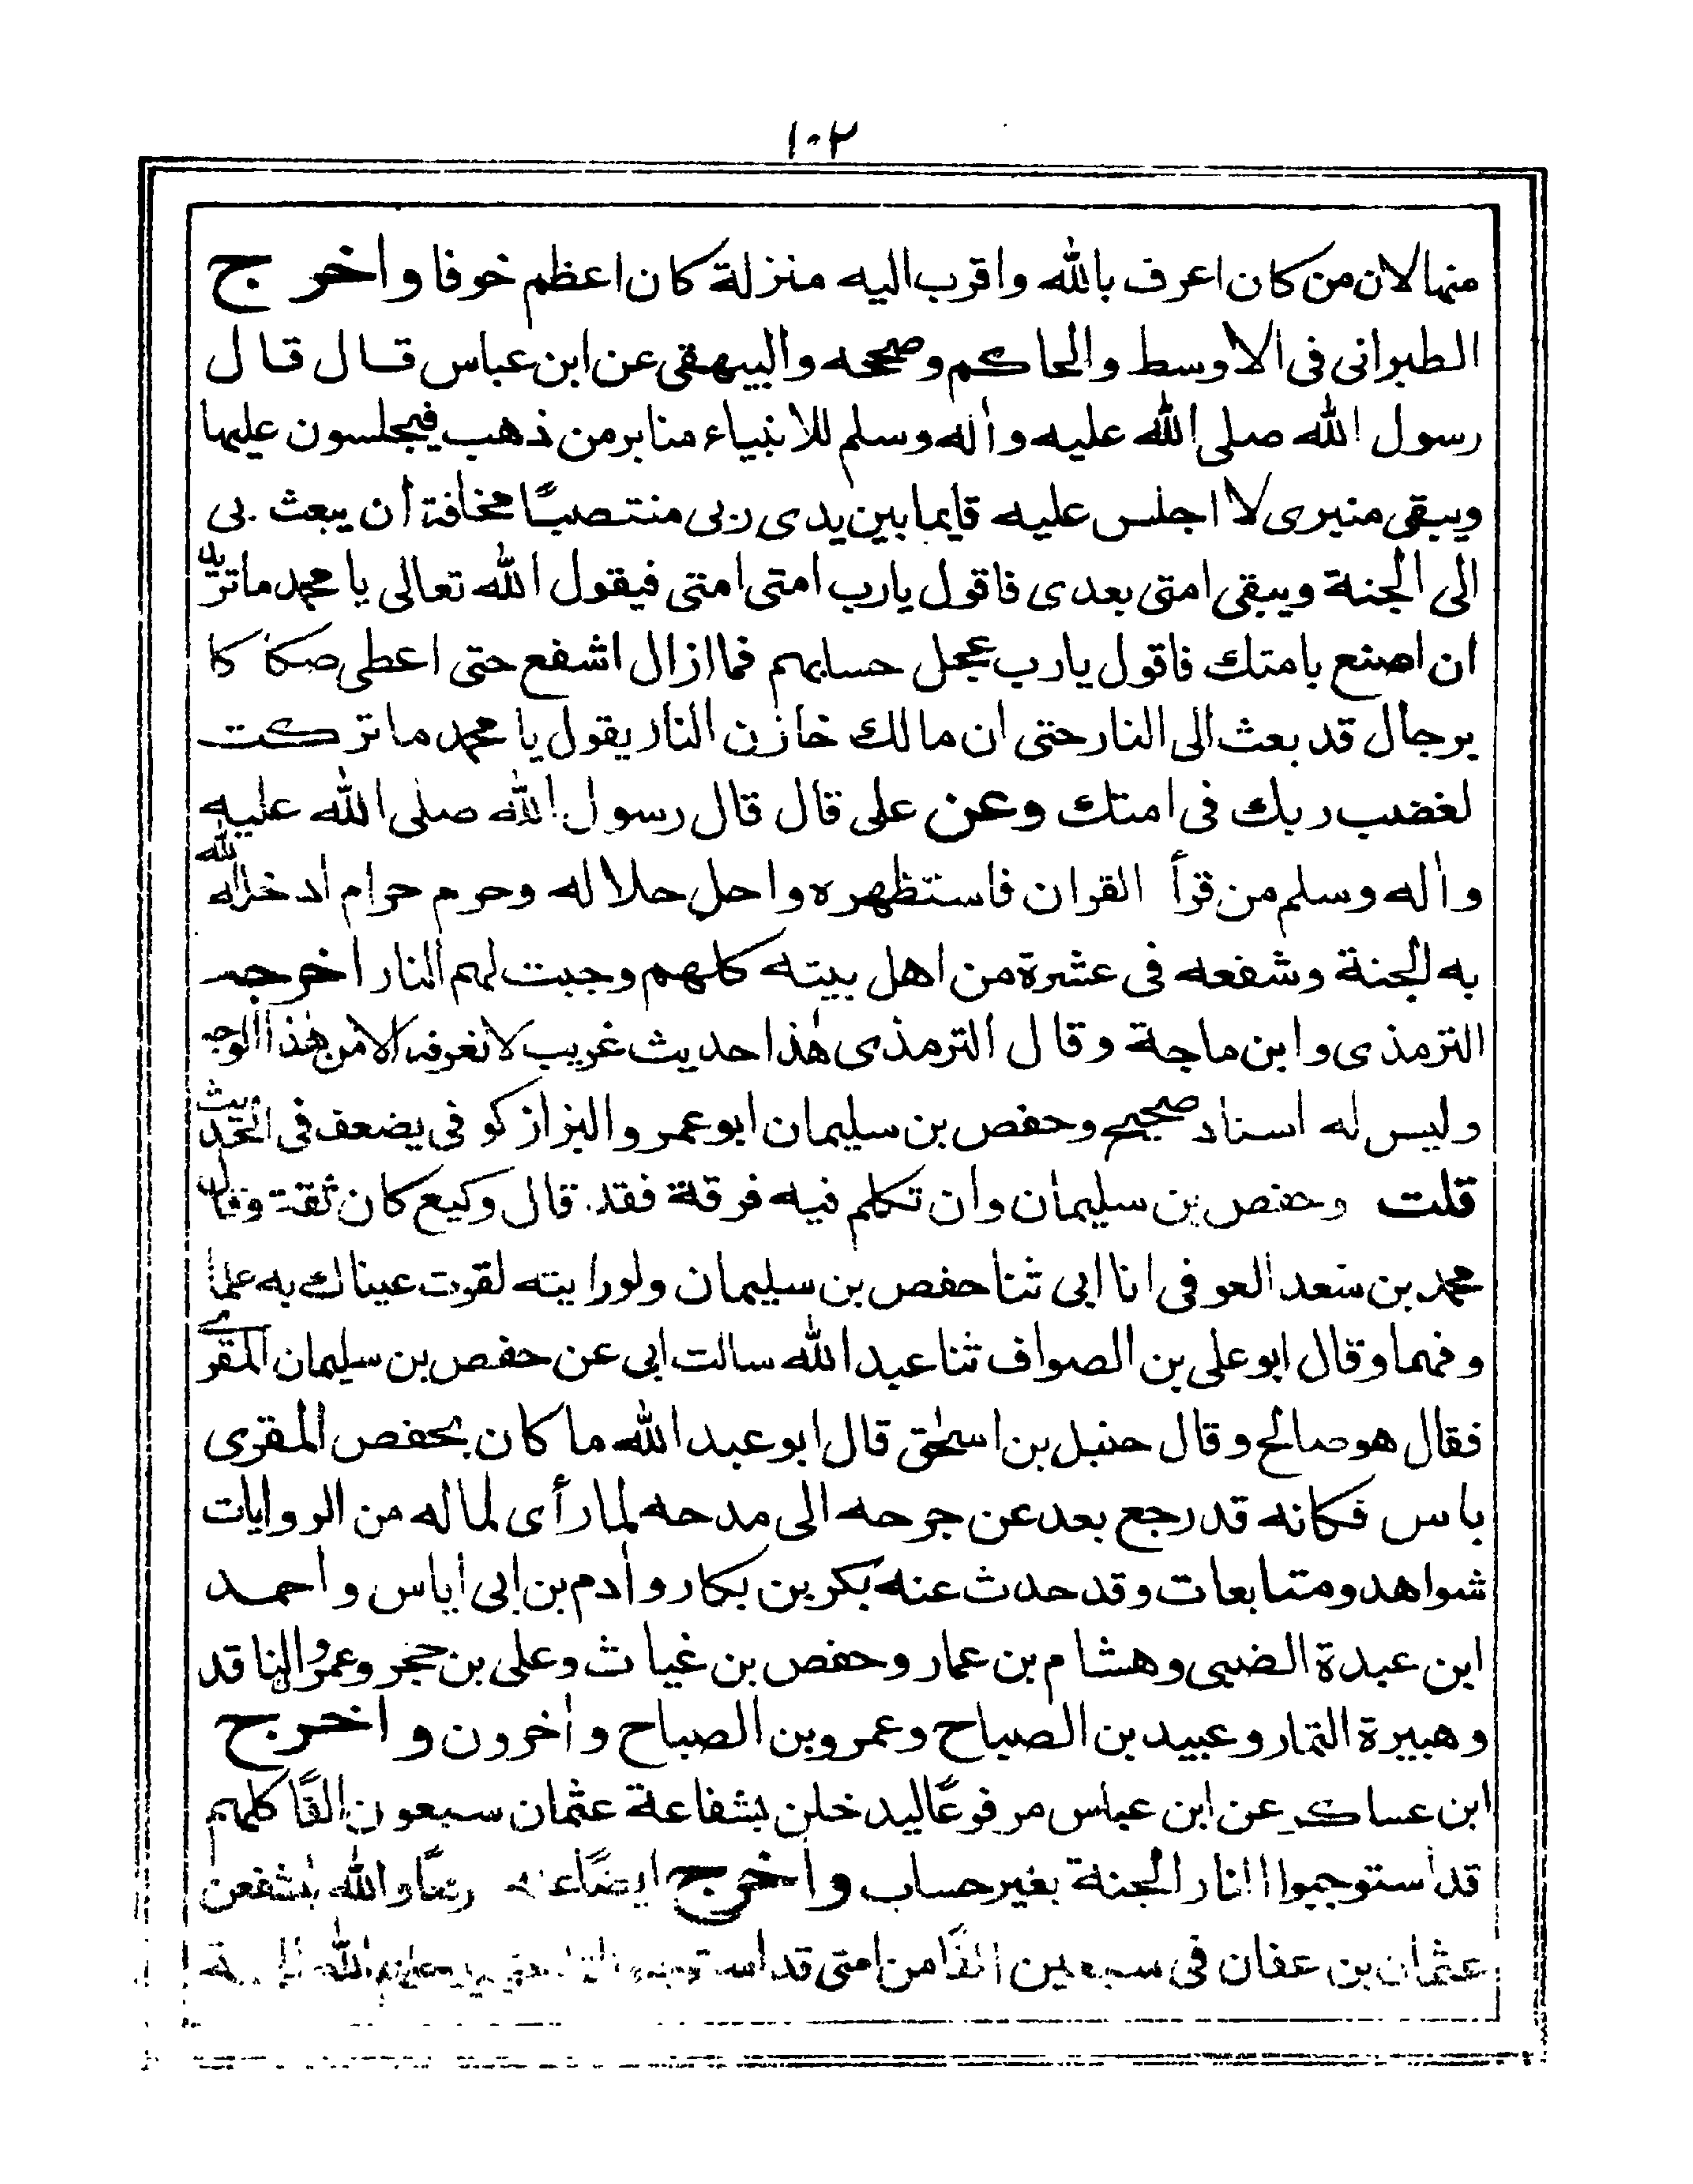 ١٠٢
منها لان من كان اعرف بالله واقرب اليه منزلة كان اعظم خوفا واخرج
الطبرانى فى الاوسط والحاكم وصححه والبيهقى عن ابن عباس قال قال
رسول الله صلى الله عليه واٰله وسلم للانبياء منابر من ذهب فيجلسون عليها
ويبقى منبرى لا اجلس عليه قايما بين يدى ربى منتصبًا مخافة ان يبعث بى
الى الجنة ويبقى امتى بعدى فاقول يارب امتى امتى فيقول الله تعالى يا محمد ماتريد
ان اصنع بامتك فاقول يارب عجل حسابهم فما ازال اشفع حتى اعطى صكاكا
برجال قد بعث الى النار حتى ان مالك خازن النار يقول يا محمد ما تركت
لغضب ربك فى امتك وعن على قال قال رسول الله صلى الله عليه
واٰله وسلم من قرأ القران فاستظهره واحل حلاله وحرم حرامه ادخله الله
به الجنة وشفعه فى عشرة من اهل بيته كلهم وجبت لهم النار اخرجه
الترمذى وابن ماجة وقال الترمذى هٰذا حديث غريب لا نعرفه الا من هٰذا الوجه
وليس له اسناد صحيح وحفص بن سليمان ابو عمرو البزاز كوفى يضعف فى الحديث
قلت وحفص بن سليمان وان تكلم فيه فرقة فقد قال وكيع كان ثقة وقال
محمد بن سعد العوفى انا ابى ثنا حفص بن سليمان ولو رايته لقرت عيناك به علما
وفهما وقال ابو على بن الصواف ثنا عبد الله سالت ابى عن حفص بن سليمان المقرى
فقال هو صالح وقال حنبل بن اسحٰق قال ابو عبد الله ما كان بحفص المقرى
باس فكانه قد رجع بعد عن جرحه الى مدحه لما رأى لما له من الروايات
شواهد ومتابعات وقد حدث عنه بكر بن بكار واٰدم بن ابى اياس واحمد
ابن عبدة الضبى وهشام بن عمار وحفص بن غياث وعلى بن حجر وعمرو الناقد
وهبيرة التمار وعبيد بن الصباح وعمرو بن الصباح واٰخرون واخرج
ابن عساكر عن ابن عباس مرفوعًا ليدخلن بشفاعة عثمان سبعون الفًا كلهم
قد استوجبوا النار الجنة بغير حساب واخرج ايضًا عنه والله ليشفعن
عثمان بن عفان فى سبعين الفًا من امتى قد الله